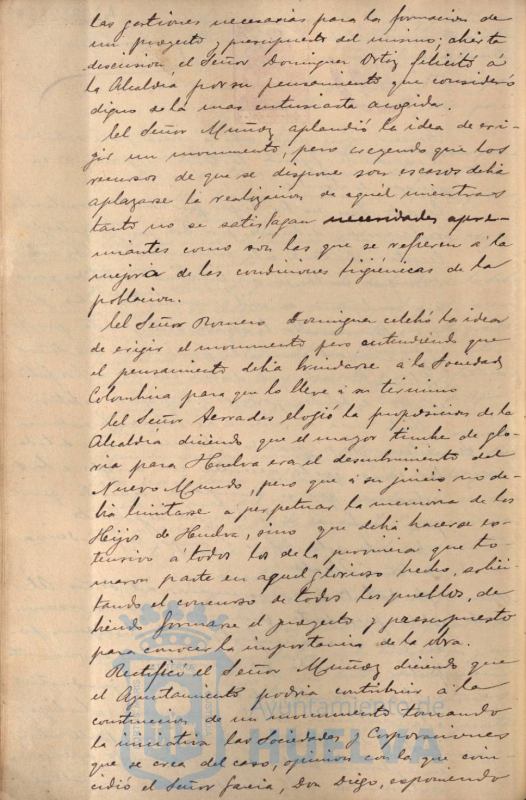 las gestiones necesarias para la formacion de
un proyecto y presupuesto del mismo; abierta
discusion, el Señor Dominguez Ortiz felicitó á
la Alcaldía por su pensamiento que consideró
digno de la mas entusiasta acogida.
El Señor Muñoz aplaudió la idea de eri-
gir un monumento, pero creyendo que los
recursos de que se dispone son escasos debia
aplazarse la realizacion de aquel mientras
tanto no se satisfagan necesidades apre-
miantes como son las que se refieren á la
mejora de las condiciones higiénicas de la
poblacion.
El Señor Romero Dominguez celebró la idea
de erigir el monumento pero entendiendo que
el pensamiento debia brindarse á la Sociedad
Colombina para que lo lleve á su término
El Señor Terrades elogió la proposicion de la
Alcaldia diciendo que el mayor timbre de glo-
ria para Huelva era el descubrimiento del
Nuevo Mundo, pero que á su juicio no de-
bia limitarse a perpetuar la memoria de los
Hijos de Huelva, sino que debia hacerse es-
tensivo á todos los de la provincia que to-
maron parte en aquel glorioso hecho, solici-
tando el concurso de todos los pueblos, de-
biendo formarse el proyecto y presupuesto
para conocer la importancia de la obra.
Rectificó el Señor Muñoz diciendo que
el Ayuntamiento podria contribuir á la
construccion de un monumento tomando
la iniciativa las Sociedades y Corporaciones
que se crea del caso, opinion con la que coin
cidió el Señor Garcia, Don Diego, esponiendo
Ayuntamiento de
HUELVA